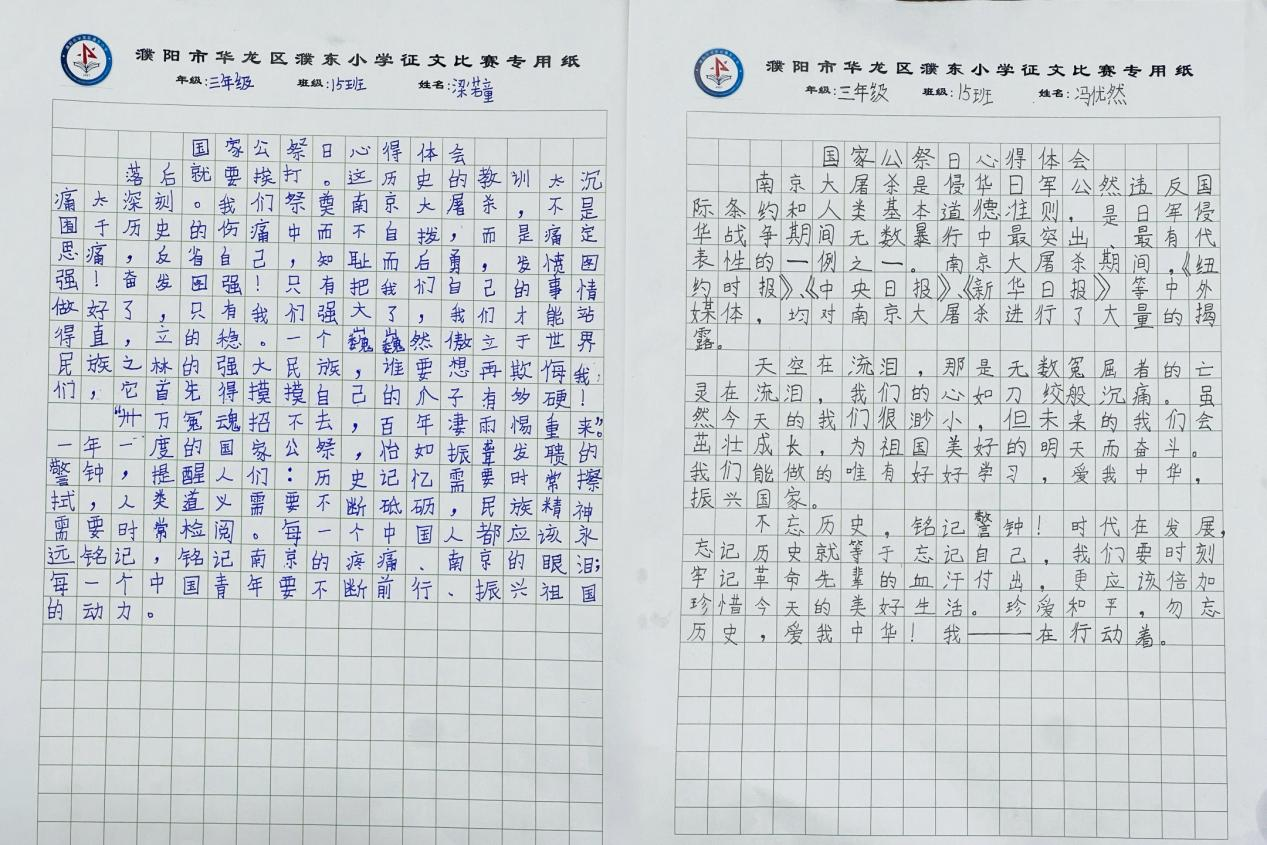 濮阳市华龙区濮东小学征文比赛专用纸
年级:三年级 班级:15班 姓名:梁若童
国家公祭日心得体会
落后就要挨打。这历史的教训太沉
痛太深刻。我们祭奠南京大屠杀，不是
囿于历史的伤痛中而不自拨，而是痛定
思痛，反省自己，知耻而后勇，发愤图
强！奋发图强！只有把我们自己的事情
做好了，只有我们强大了，我们才能站
得直，立的稳。一个巍巍然傲立于世界
民族之林的强大民族，谁要想再欺侮我
们，它首先得摸摸自己的爪子有多硬！
“卅万冤魂招不去，百年凄雨惕重来”。
一年一度的国家公祭，恰如振聋发聩的
警钟，提醒人们：历史记忆需要时常擦
拭，人类道义需要不断砥砺，民族精神
需要时常检阅。每一个中国人都应该永
远铭记，铭记南京的疼痛、南京的眼泪；
每一个中国青年要不断前行、振兴祖国
的动力。
濮阳市华龙区濮东小学征文比赛专用纸
年级:三年级 班级:15班 姓名:冯优然
国家公祭日心得体会
南京大屠杀是侵华日军公然违反国
际条约和人类基本道德准则，是日军侵
华战争期间无数暴行中最突出、最有代
表性的一例之一。南京大屠杀期间，《纽
约时报》、《中央日报》、《新华日报》等中外
媒体，均对南京大屠杀进行了大量的揭
露。
天空在流泪，那是无数冤屈者的亡
灵在流泪，我们的心如刀绞般沉痛。虽
然今天的我们很渺小，但未来的我们会
茁壮成长，为祖国美好的明天而奋斗。
我们能做的唯有好好学习，爱我中华，
振兴国家。
不忘历史，铭记警钟！时代在发展，
忘记历史就等于忘记自己，我们要时刻
牢记革命先辈的血汗付出，更应该倍加
珍惜今天的美好生活。珍爱和平，勿忘
历史，爱我中华！我——在行动着。